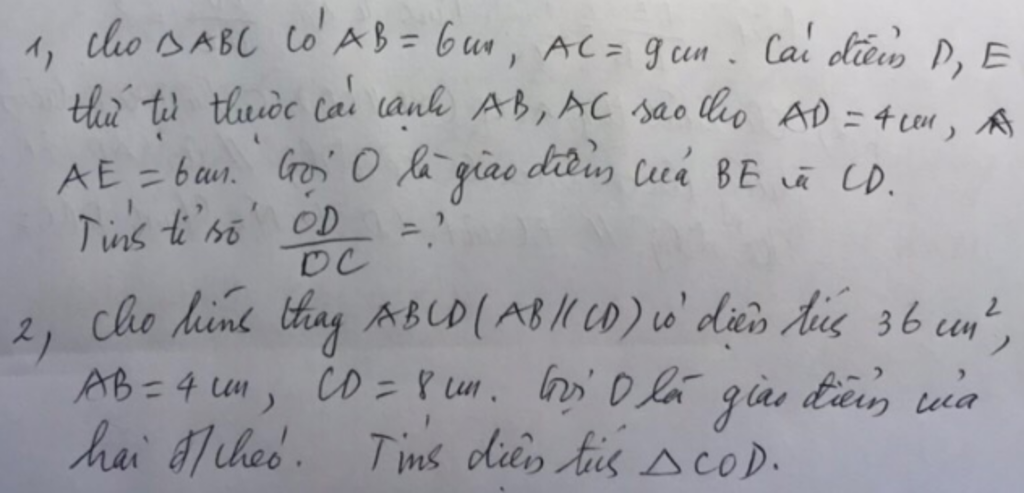 1, Cho △ABC có AB = 6cm, AC = 9cm. Các điểm D, E
thứ tự thuộc các cạnh AB, AC sao cho AD = 4cm,
AE = 6cm. Gọi O là giao điểm của BE và CD.
Tính tỉ số OD/DC = ?
2, Cho hình thag ABCD (AB//CD) có diện tích 36 cm²,
AB = 4 cm, CD = 8 cm. Gọi O là giao điểm của
hai đ/chéo. Tính diện tích △COD.